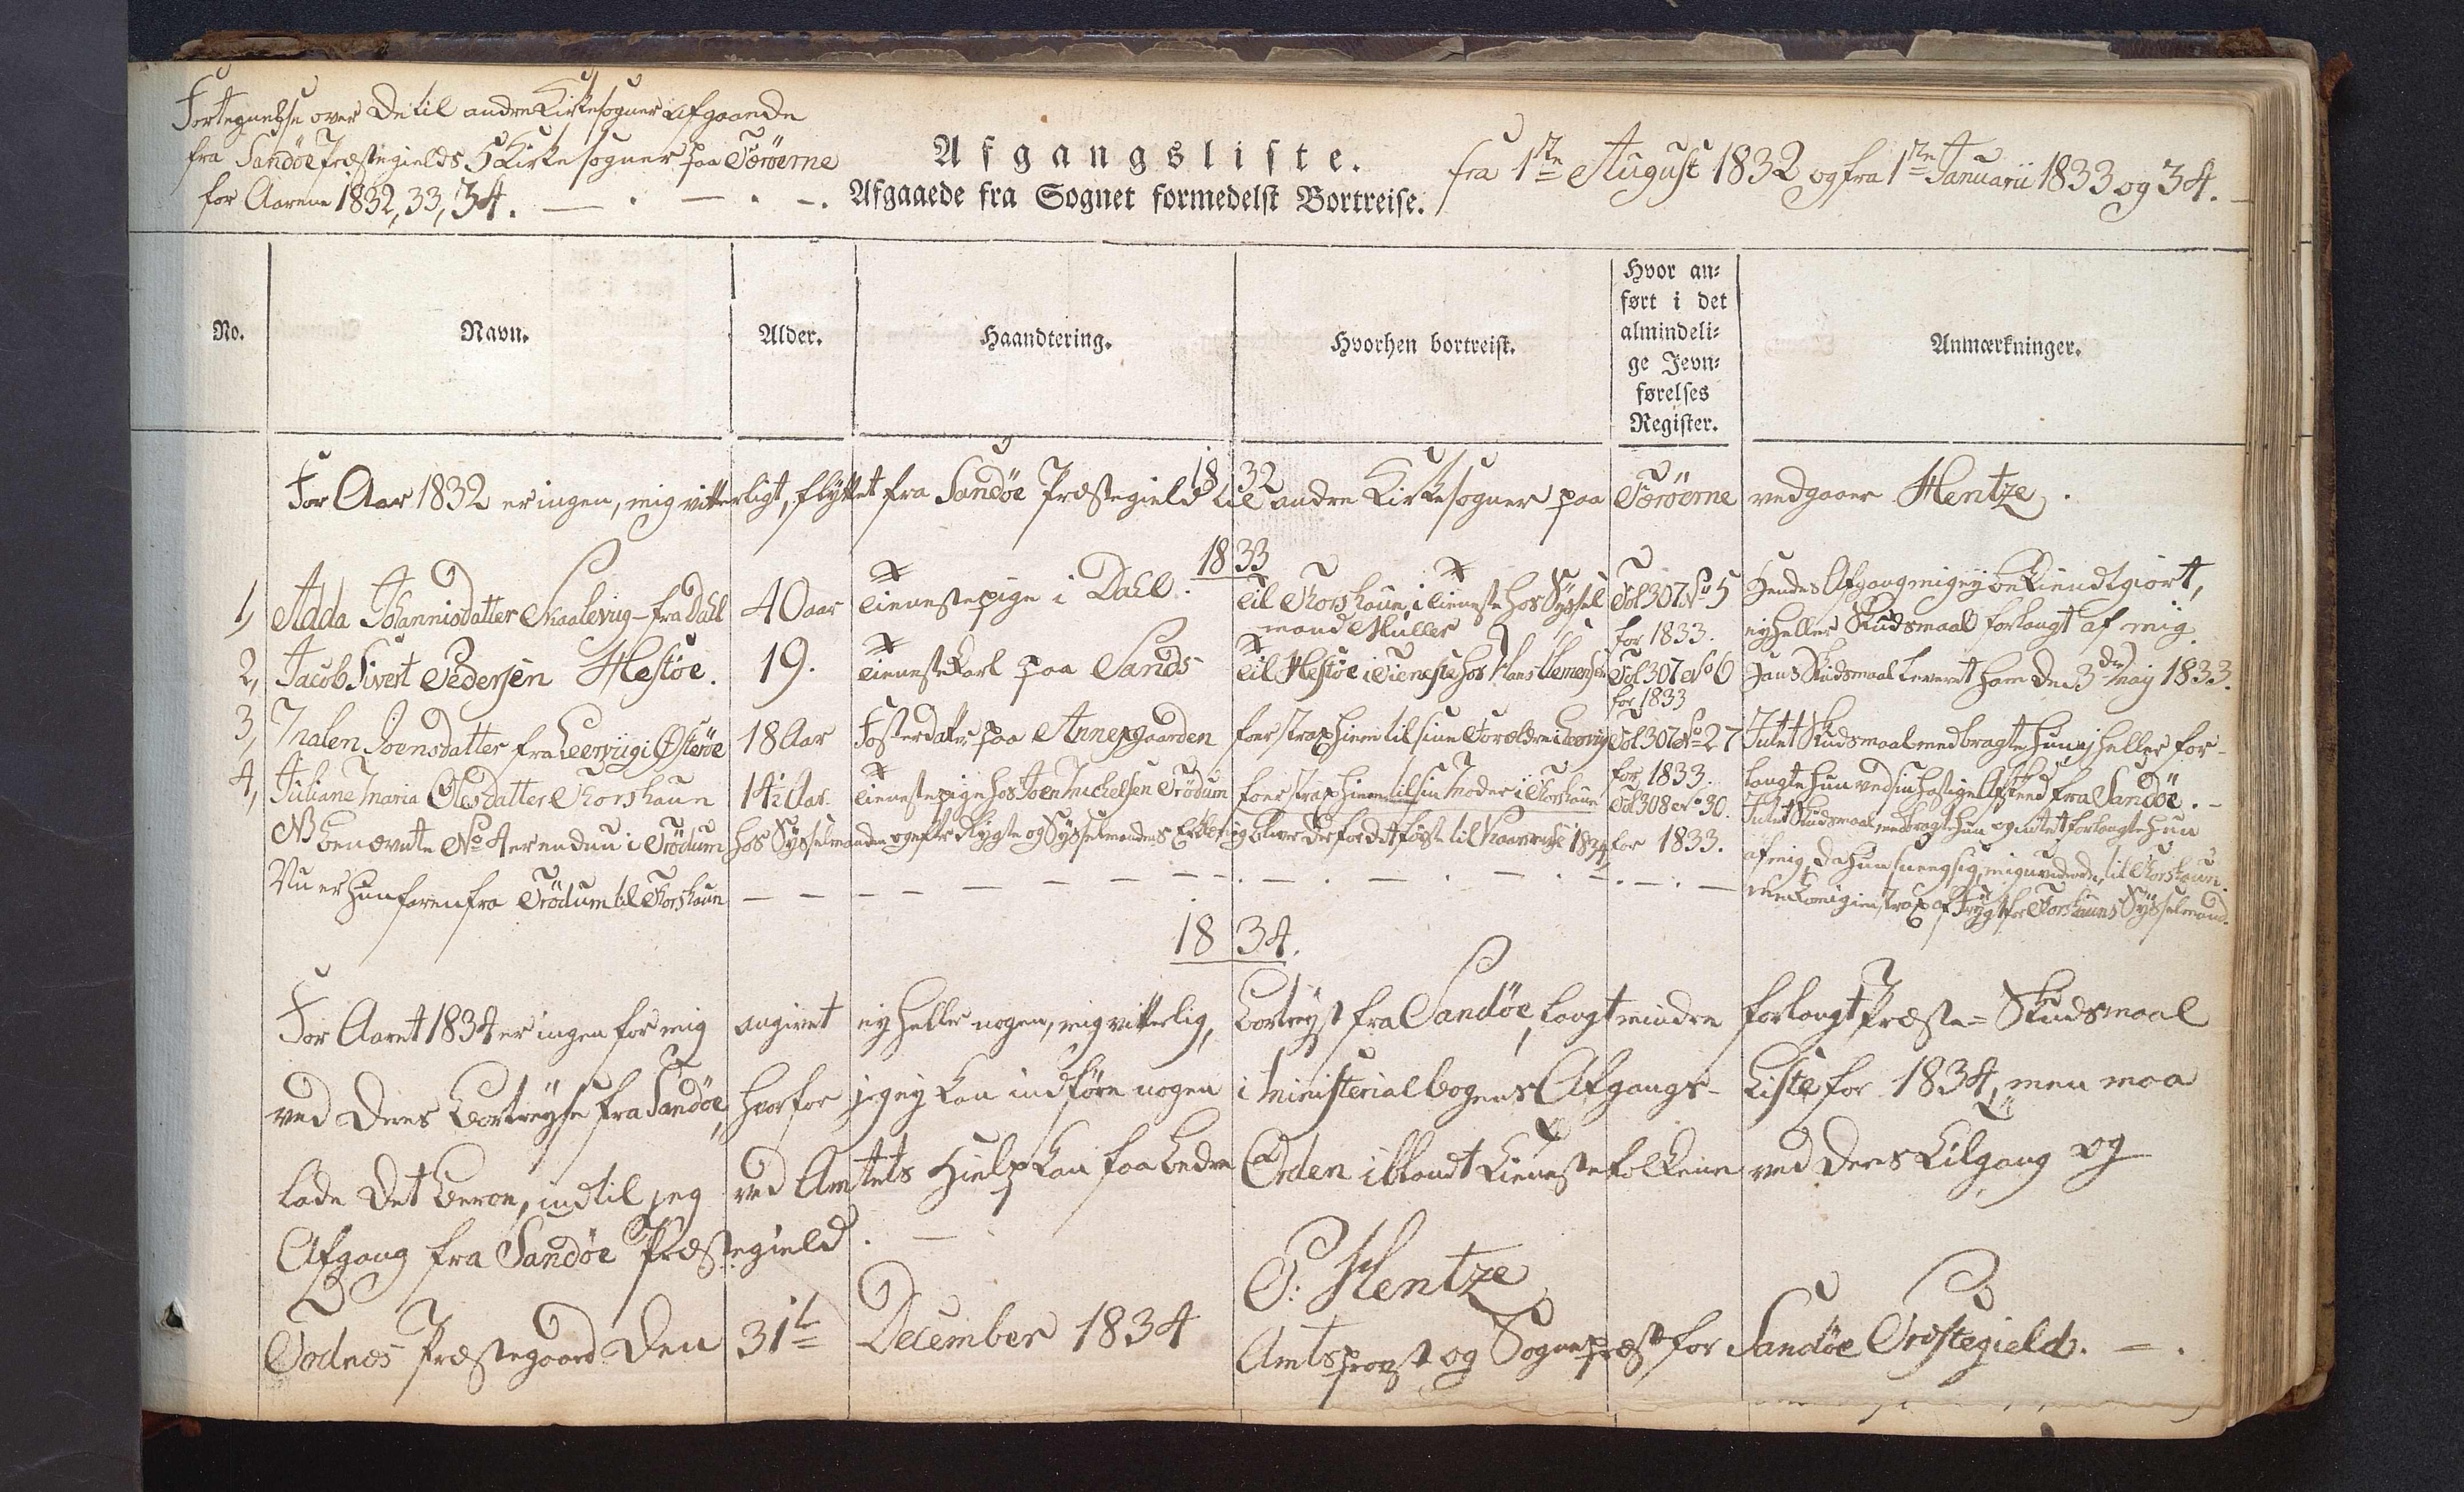 Fortegnelse over De til andre Kirkesogner Afgaaende
fra Sandöe Præstegields 5 Kirkesogner paa Færöerne
for Aarene 1832, 33, 34. — . — . —.
Afgangsliste.
Afgaaede fra Sognet formedelst Bortreise.
fra 1ste August 1832 og fra 1ste Januarii 1833 og 34. —
No.
Navn.
Alder.
Haandtering.
Hvorhen bortreist.
Hvor an-
ført i det
almindeli-
ge Jevn-
førelses
Register.
Anmærkninger.
1832
For Aar 1832 er ingen, mig vitterligt, flyttet fra Sandöe Præstegield til andre Kirkesogner paa Færöerne vedgaaer Hentze.
1833
1, Adda Johannisdatter Skaalevug - fra Dahl 40 aar Tienestepige i Dahl. Til Thorshaun i Tieneste hos Syssel
mand Müller Fol 307 No 5
for 1833. Hendes Afgang mig ey bekiendtgiort,
ey heller Skudsmaal forlangt af mig
2, Jacob Sivert Pedersen Hestöe. 19. Tienestekarl paa Sands Til Hestöe i Tieneste hos Hans Clemensen Fol 307 No 6
for 1833 Hans Skudsmaal leveret ham den 3die May 1833.
3, Malen Joensdatter fra Leervug i Österöe 18 Aar Fosterdatter paa Annexgaarden foer strax hiem til sine Forældre i Leervig Fol 307 No 27
for 1833. Intet Skudsmaal medbragte hun, ej heller for-
langte hun ved sin hastige Afskeed fra Sandöe. —
4, Juliane Maria Olesdatter Thorshaun 14½ Aar. Tienestepige hos Joen Michelsen Trödum foer strax hiem til sin Moder i Thorshaun Fol 308 No 30.
for 1833. Intet Skudsmaal medbragte hun og intet forlangte hun
af mig, da hun sneeg sig, mig uvidende, til Thorshaun.
igien strax af Frygt for Thorshauns Sysselmand.
NB benævnte No 4 er endnu i Trödum hos Sysselmanden og efter Rygte og Sysselmandens bliver der for det förste til 1834
Nu er hun faren fra Trödum til Thorshaun — — —
1834.
For Aaret 1834 er ingen for mig angivet ey heller nogen, mig vitterlig, bortreyst fra Sandöe, langt mindre forlangt Præste-Skudsmaal
ved Deres Bortreyse fra Sandöe, hvorfor jeg ey kan indföre nogen i Ministerialbogens Afgangs-Liste for 1834, men maa
lade Det beroe, indtil jeg ved Amtets Hielp kan faa bedre Orden iblandt Tienestefolkene ved Deres Tilgang og
Afgang fra Sandöe Præstegield. —
Todnæs Præstegaard Den 31te December 1834
P: Hentze
Amtsprovst og Sognepræst for Sandöe Præstegield. — .